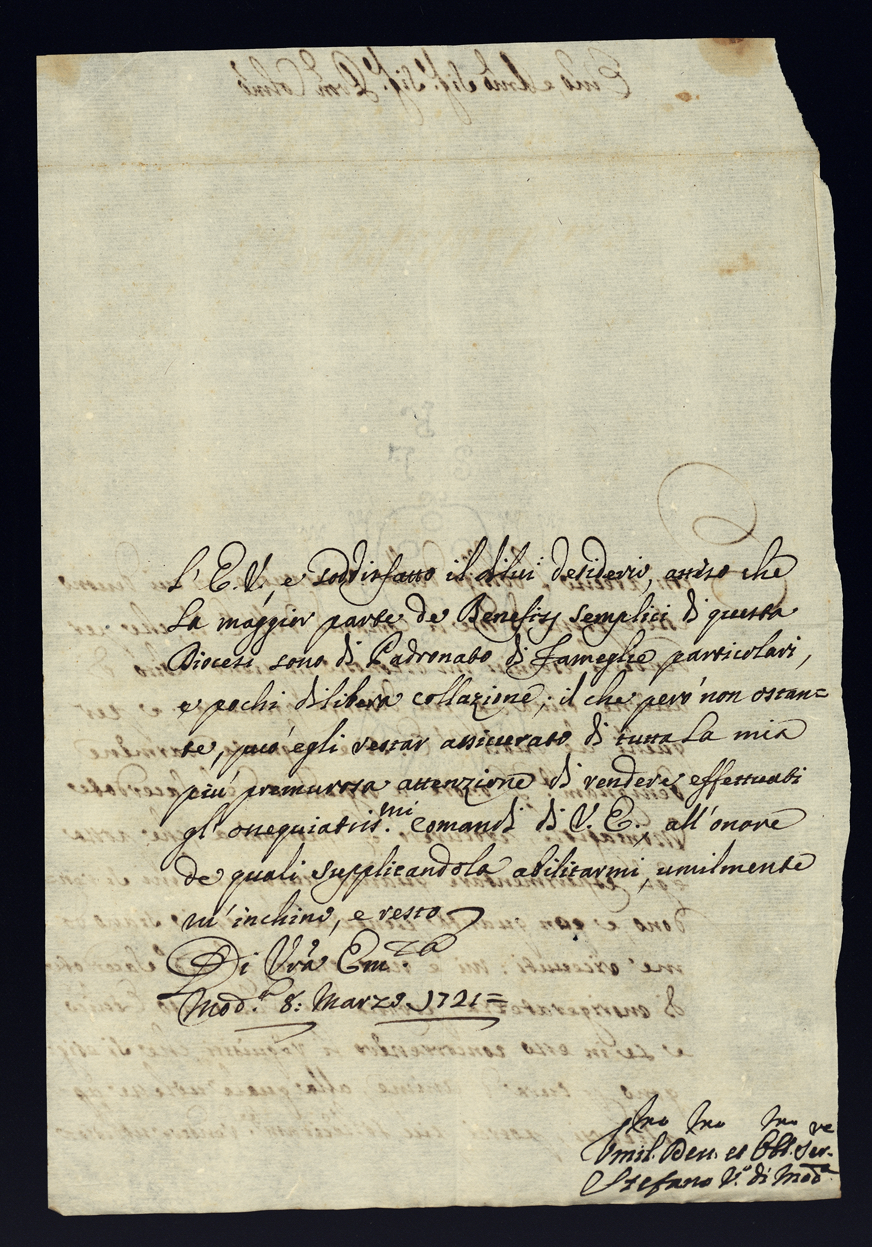 L' E. V., e soddisfatto il di lui desiderio, atteso che
La maggior parte de Beneficij semplici di questa
Diocesi sono di Padronato di Fameglie particolari,
e pochi di libera collazione; il che però non ostan=
te, può egli restar assicurato di tutta La mia
più premurosa attenzione di rendere effettuati
gl'ossequiatiss.mi comandi di V. E., all'onore
de quali supplicandola abilitarmi, umilmente
m'inchino, e resto
Di Vra Em.za
Mod.a 8: Marzo 1721=
Umil.mo Dev.mo et Obb.mo Ser.re
Stefano V.o di Mod.a